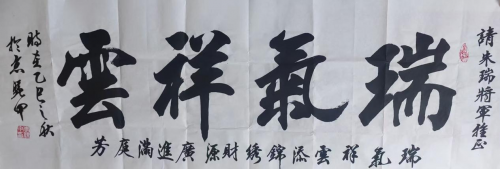 請朱瑞將軍雅正
瑞氣祥雲
瑞氣祥雲添錦绣財源廣進滿庭芳
時在乙巳之秋
於